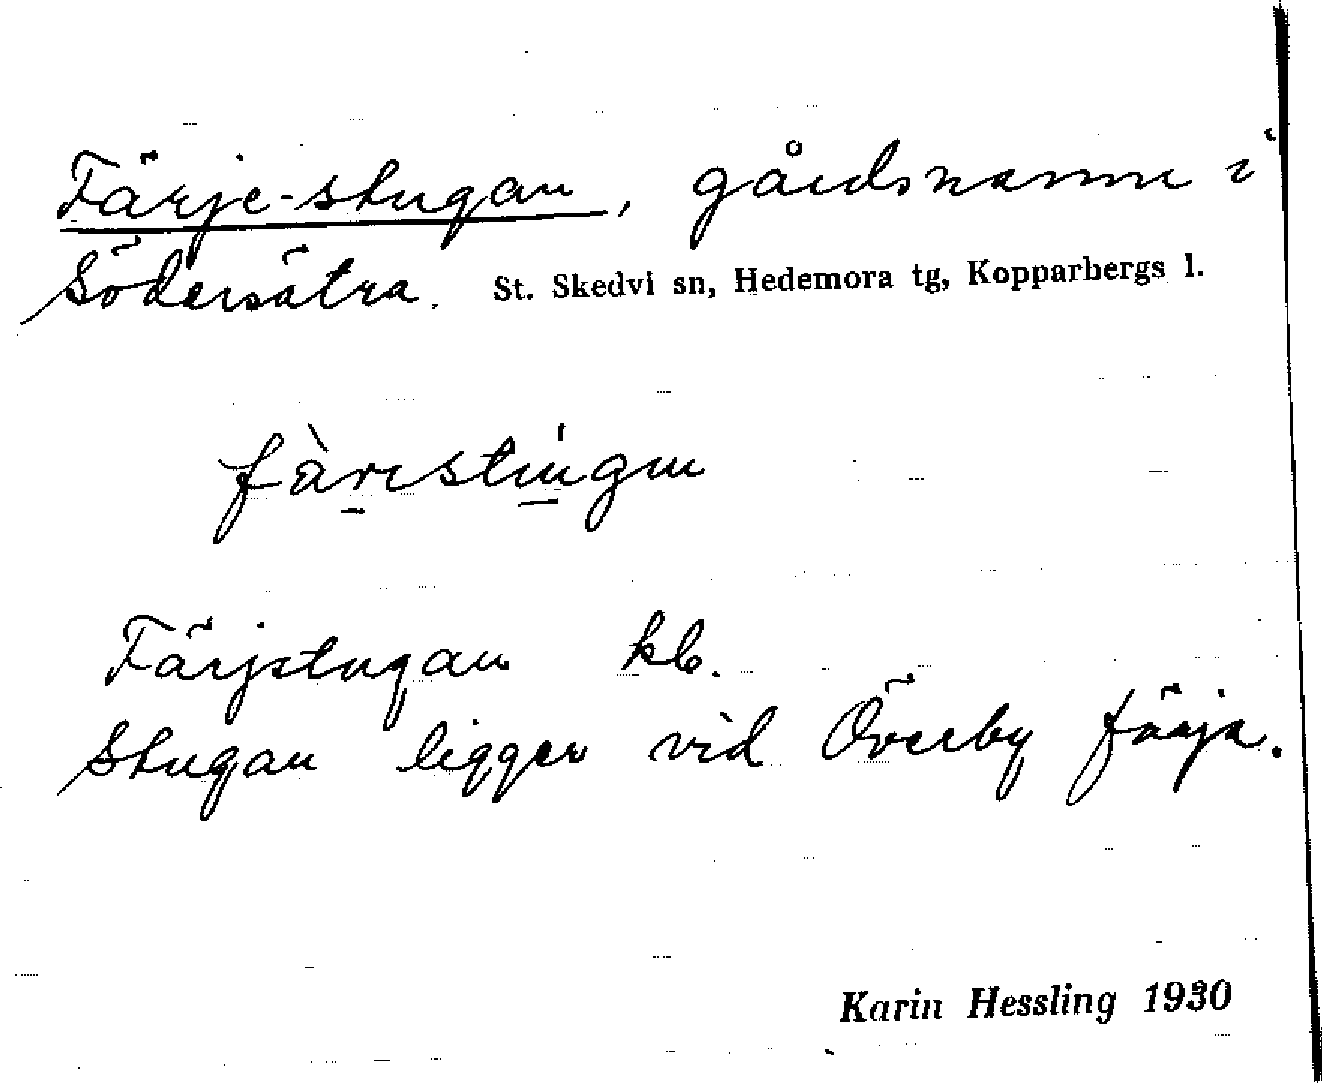 Färje-stugan, gårdsnamn i
Södersätra. St. Skedvi sn, Hedemora tg, Kopparbergs l.
Färjstugan kb.
Stugan ligger vid Överby färja.
Karin Hessling 1930